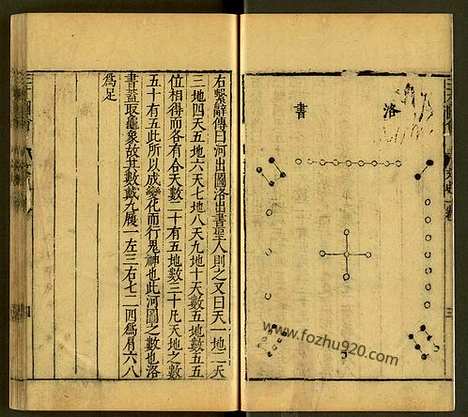 洛書
右繫辭傳曰河出圖洛出書聖人則之又曰天一地二天
三地四天五地六天七地八天九地十天數五地數五五
位相得而各有合天數二十有五地數三十凡天地之數
五十有五此所以成變化而行鬼神也此河圖之數也洛
書蓋取龜象故其數戴九履一左三右七二四爲肩六八
爲足
三
四
www.fozhu920.com